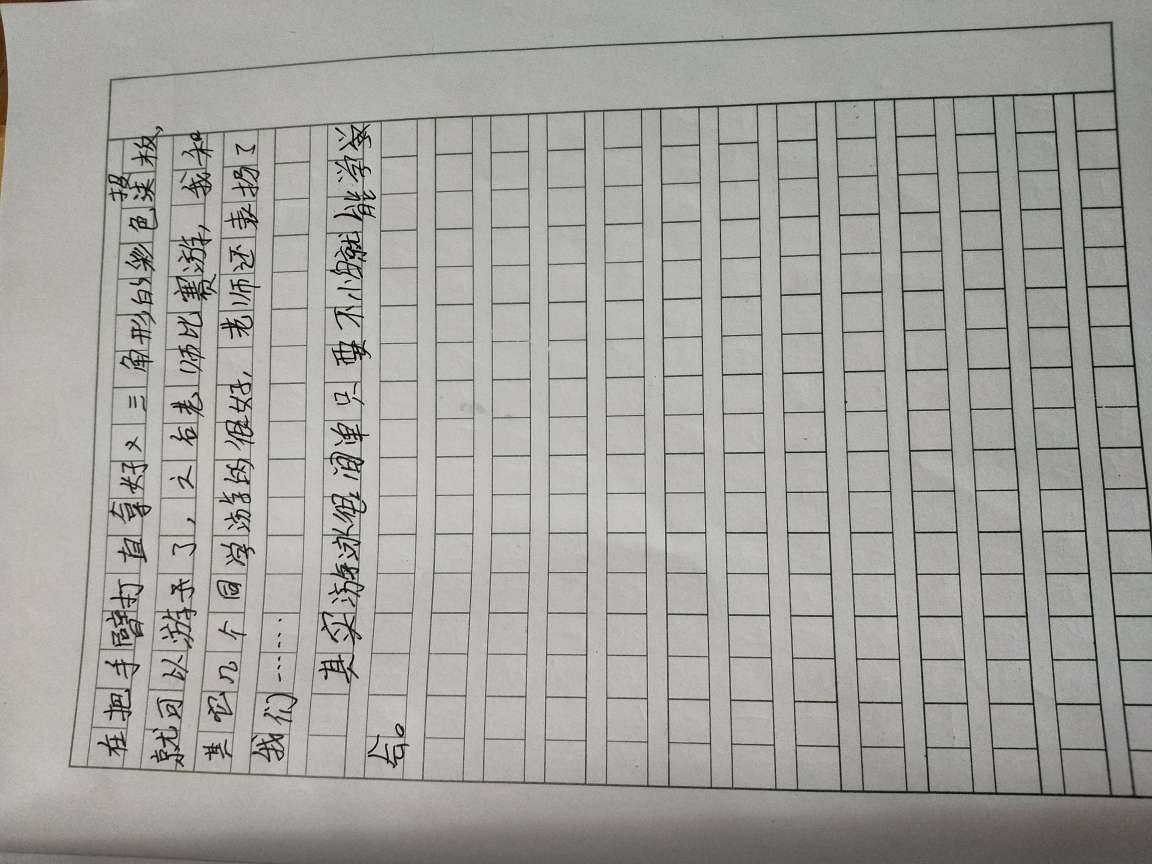 在把手臂打直拿好三角形的彩色板，
就可以游了，之后老师比赛游，我和
其它几个同学游的很好，老师还表扬了
我们……
其实游泳很间单只要不怕就能学
会。